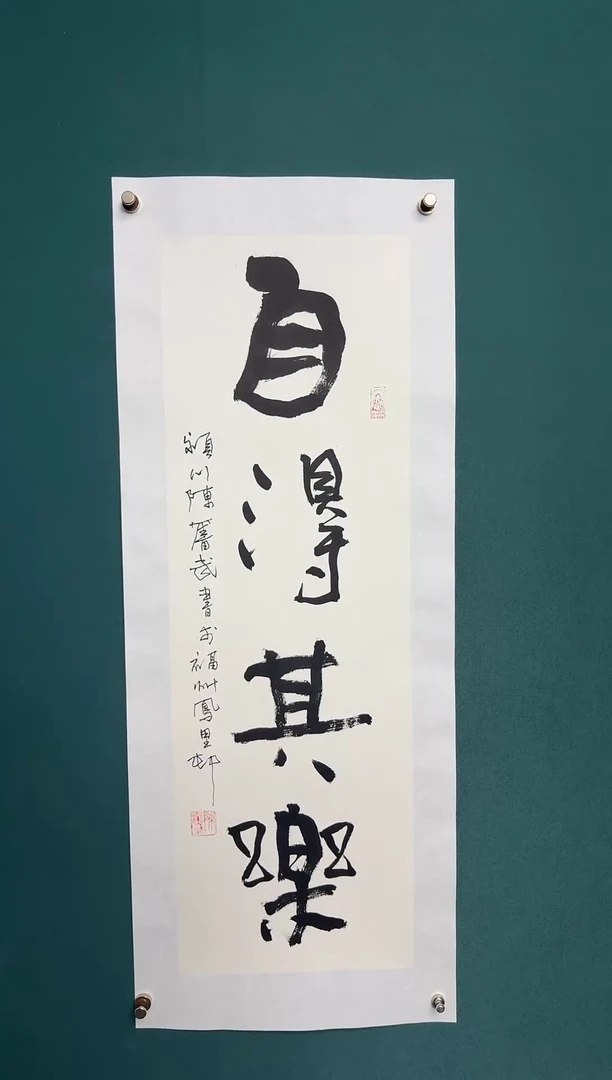 自得其樂
潁川陳蕃武書於福州鳳里邨